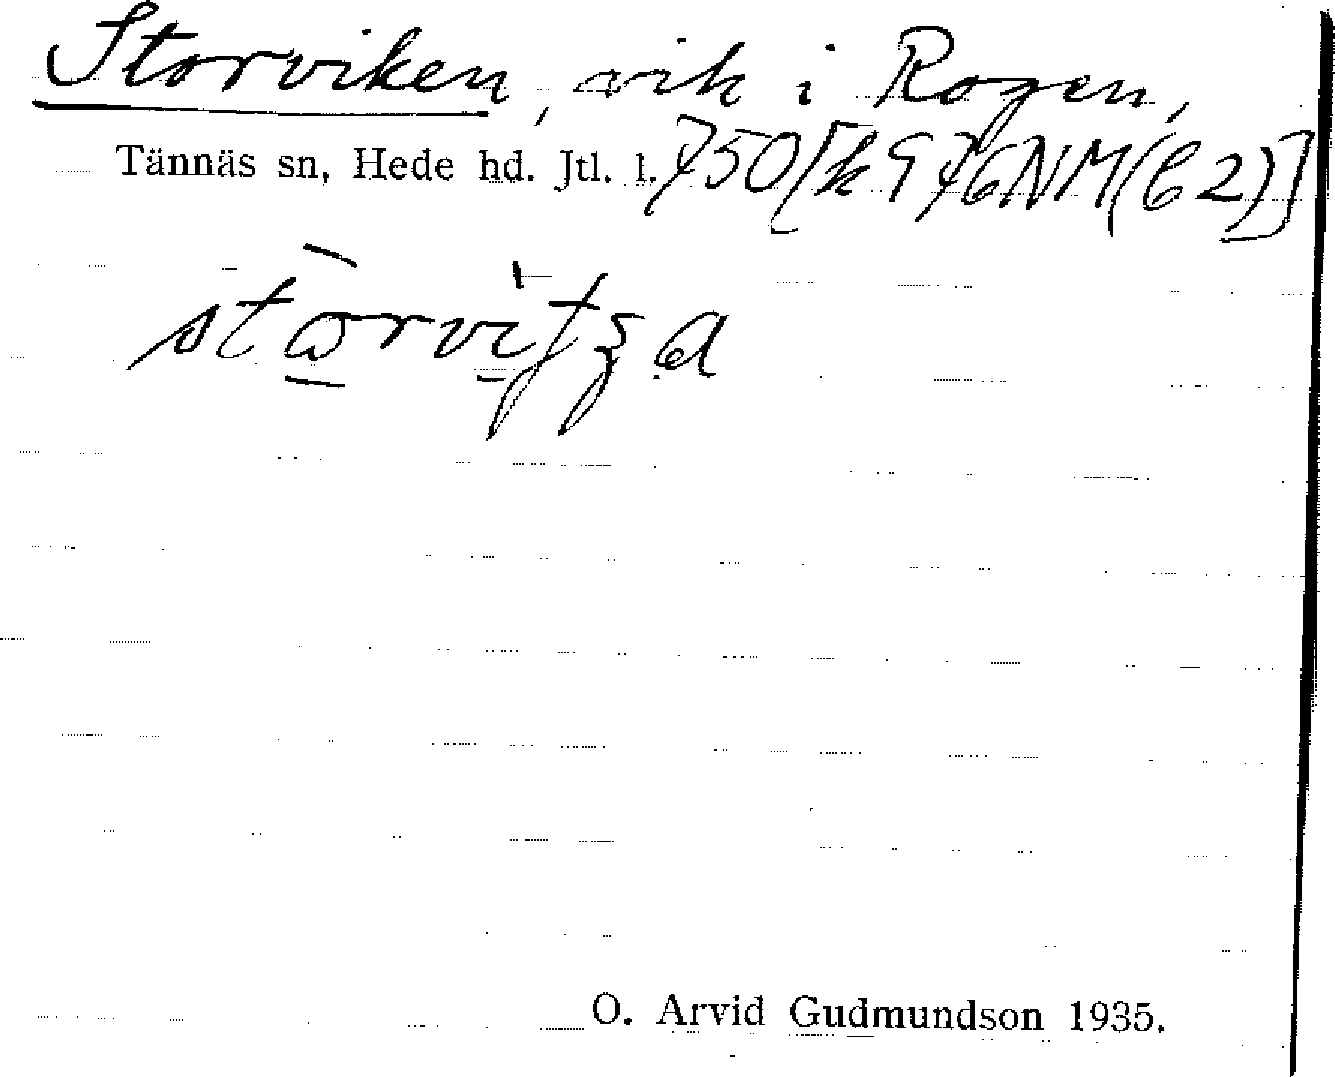 Storviken, vik i Rogen,
Tännäs sn, Hede hd. Jtl. l. 750[k976NM(C2)]
O. Arvid Gudmundson 1935.